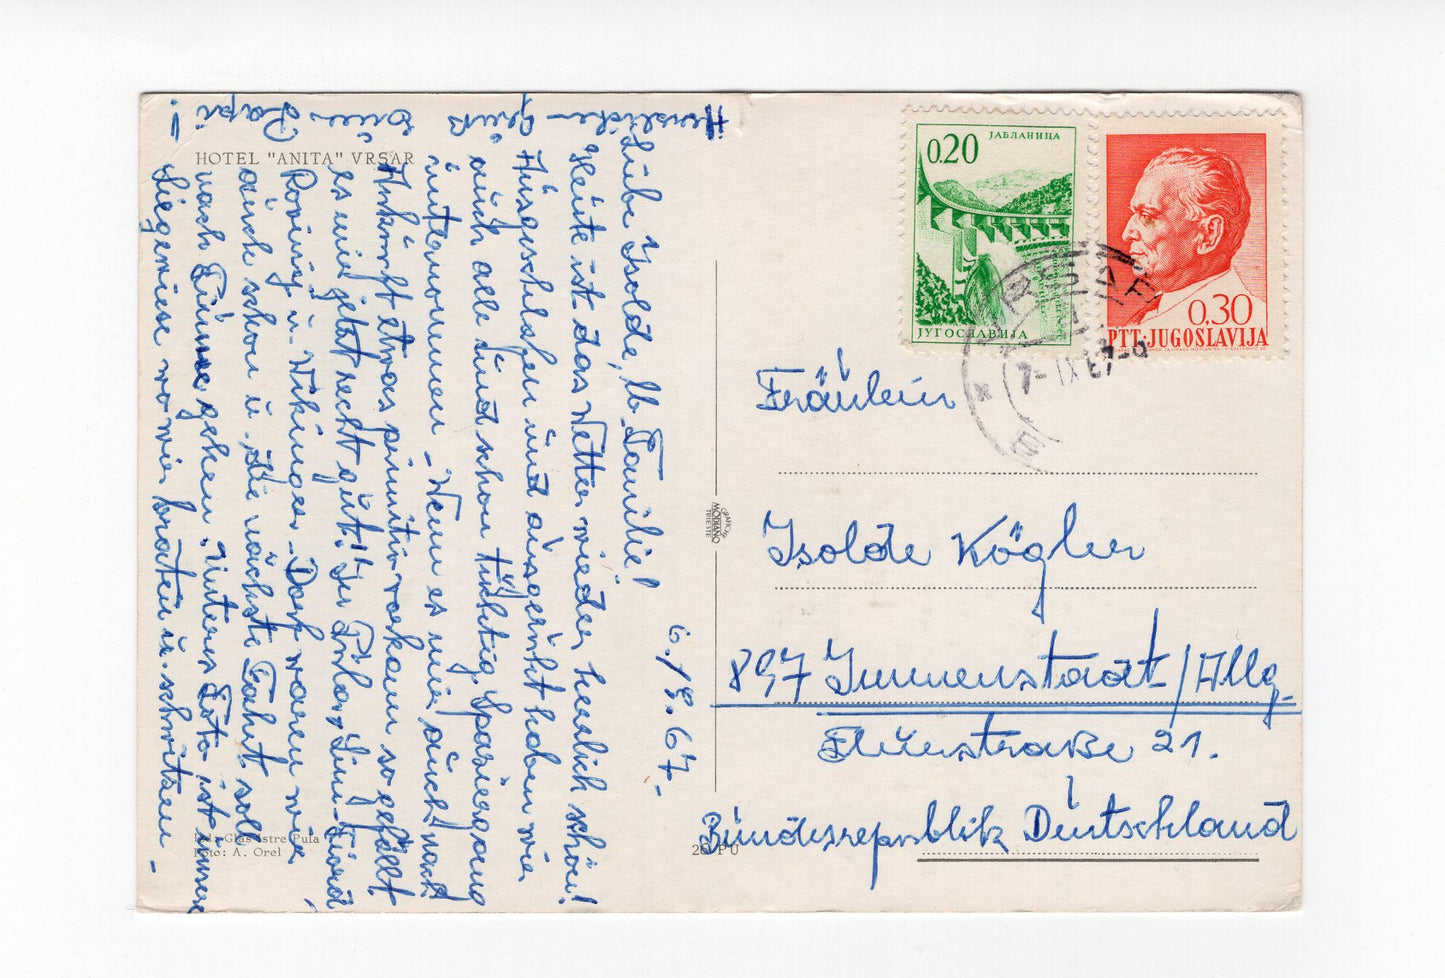 HOTEL "ANITA" VRSAR
6./9.67.-
Liebe Isolde, lb. Familie!
Heute ist das Wetter wieder herrlich schön!
Ausgeschlafen und ausgeruht haben wir
auch alle und schon tüchtig Spaziergang
unternommen - Wenn es mir auch nach
Ankunft etwas primitiv vorkam so gefällt
es mir jetzt recht gut! In Limfjord
Rovinj u. Wikinger-Dorf waren wir
auch schon u. die nächste Fahrt soll
nach gehen. Unters Auto ist immer
Liegewiese wo wir braten u. schwitzen -
Herzlichen
Gruß
Euer
Papi
Izd.: Glas Istre Pula
Foto: A. Orel
26 PU
GRAFICHE
MODIANO
TRIESTE
0.20
ЈАБЛАНИЦА
ЈУГОСЛАВИЈА
0,30
PTT-JUGOSLAVIJA
VRSAR
7-IX 67-9
Fräulein
Isolde Kögler
897 Immenstadt/Allg.
21.
Bundesrepublik Deutschland